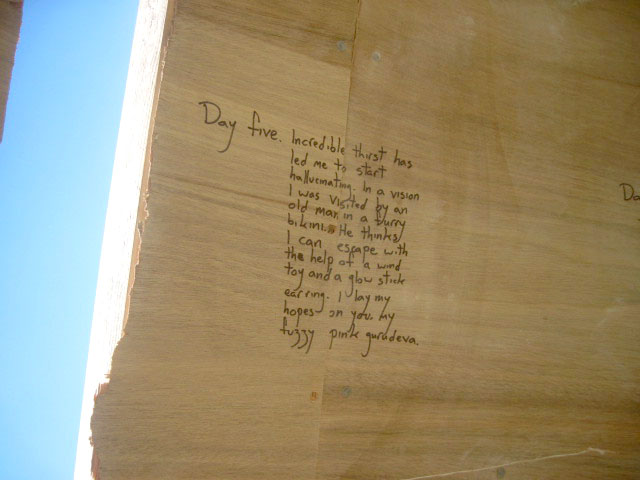 Day five. Incredible thirst has
led me to start
hallucinating. In a vision
I was visited by an
old man in a furry
bikini. He thinks
I can escape with
the help of a wind
toy and a glow stick
earring. I lay my
hopes on you. My
fuzzy pink gurudeva.
Da